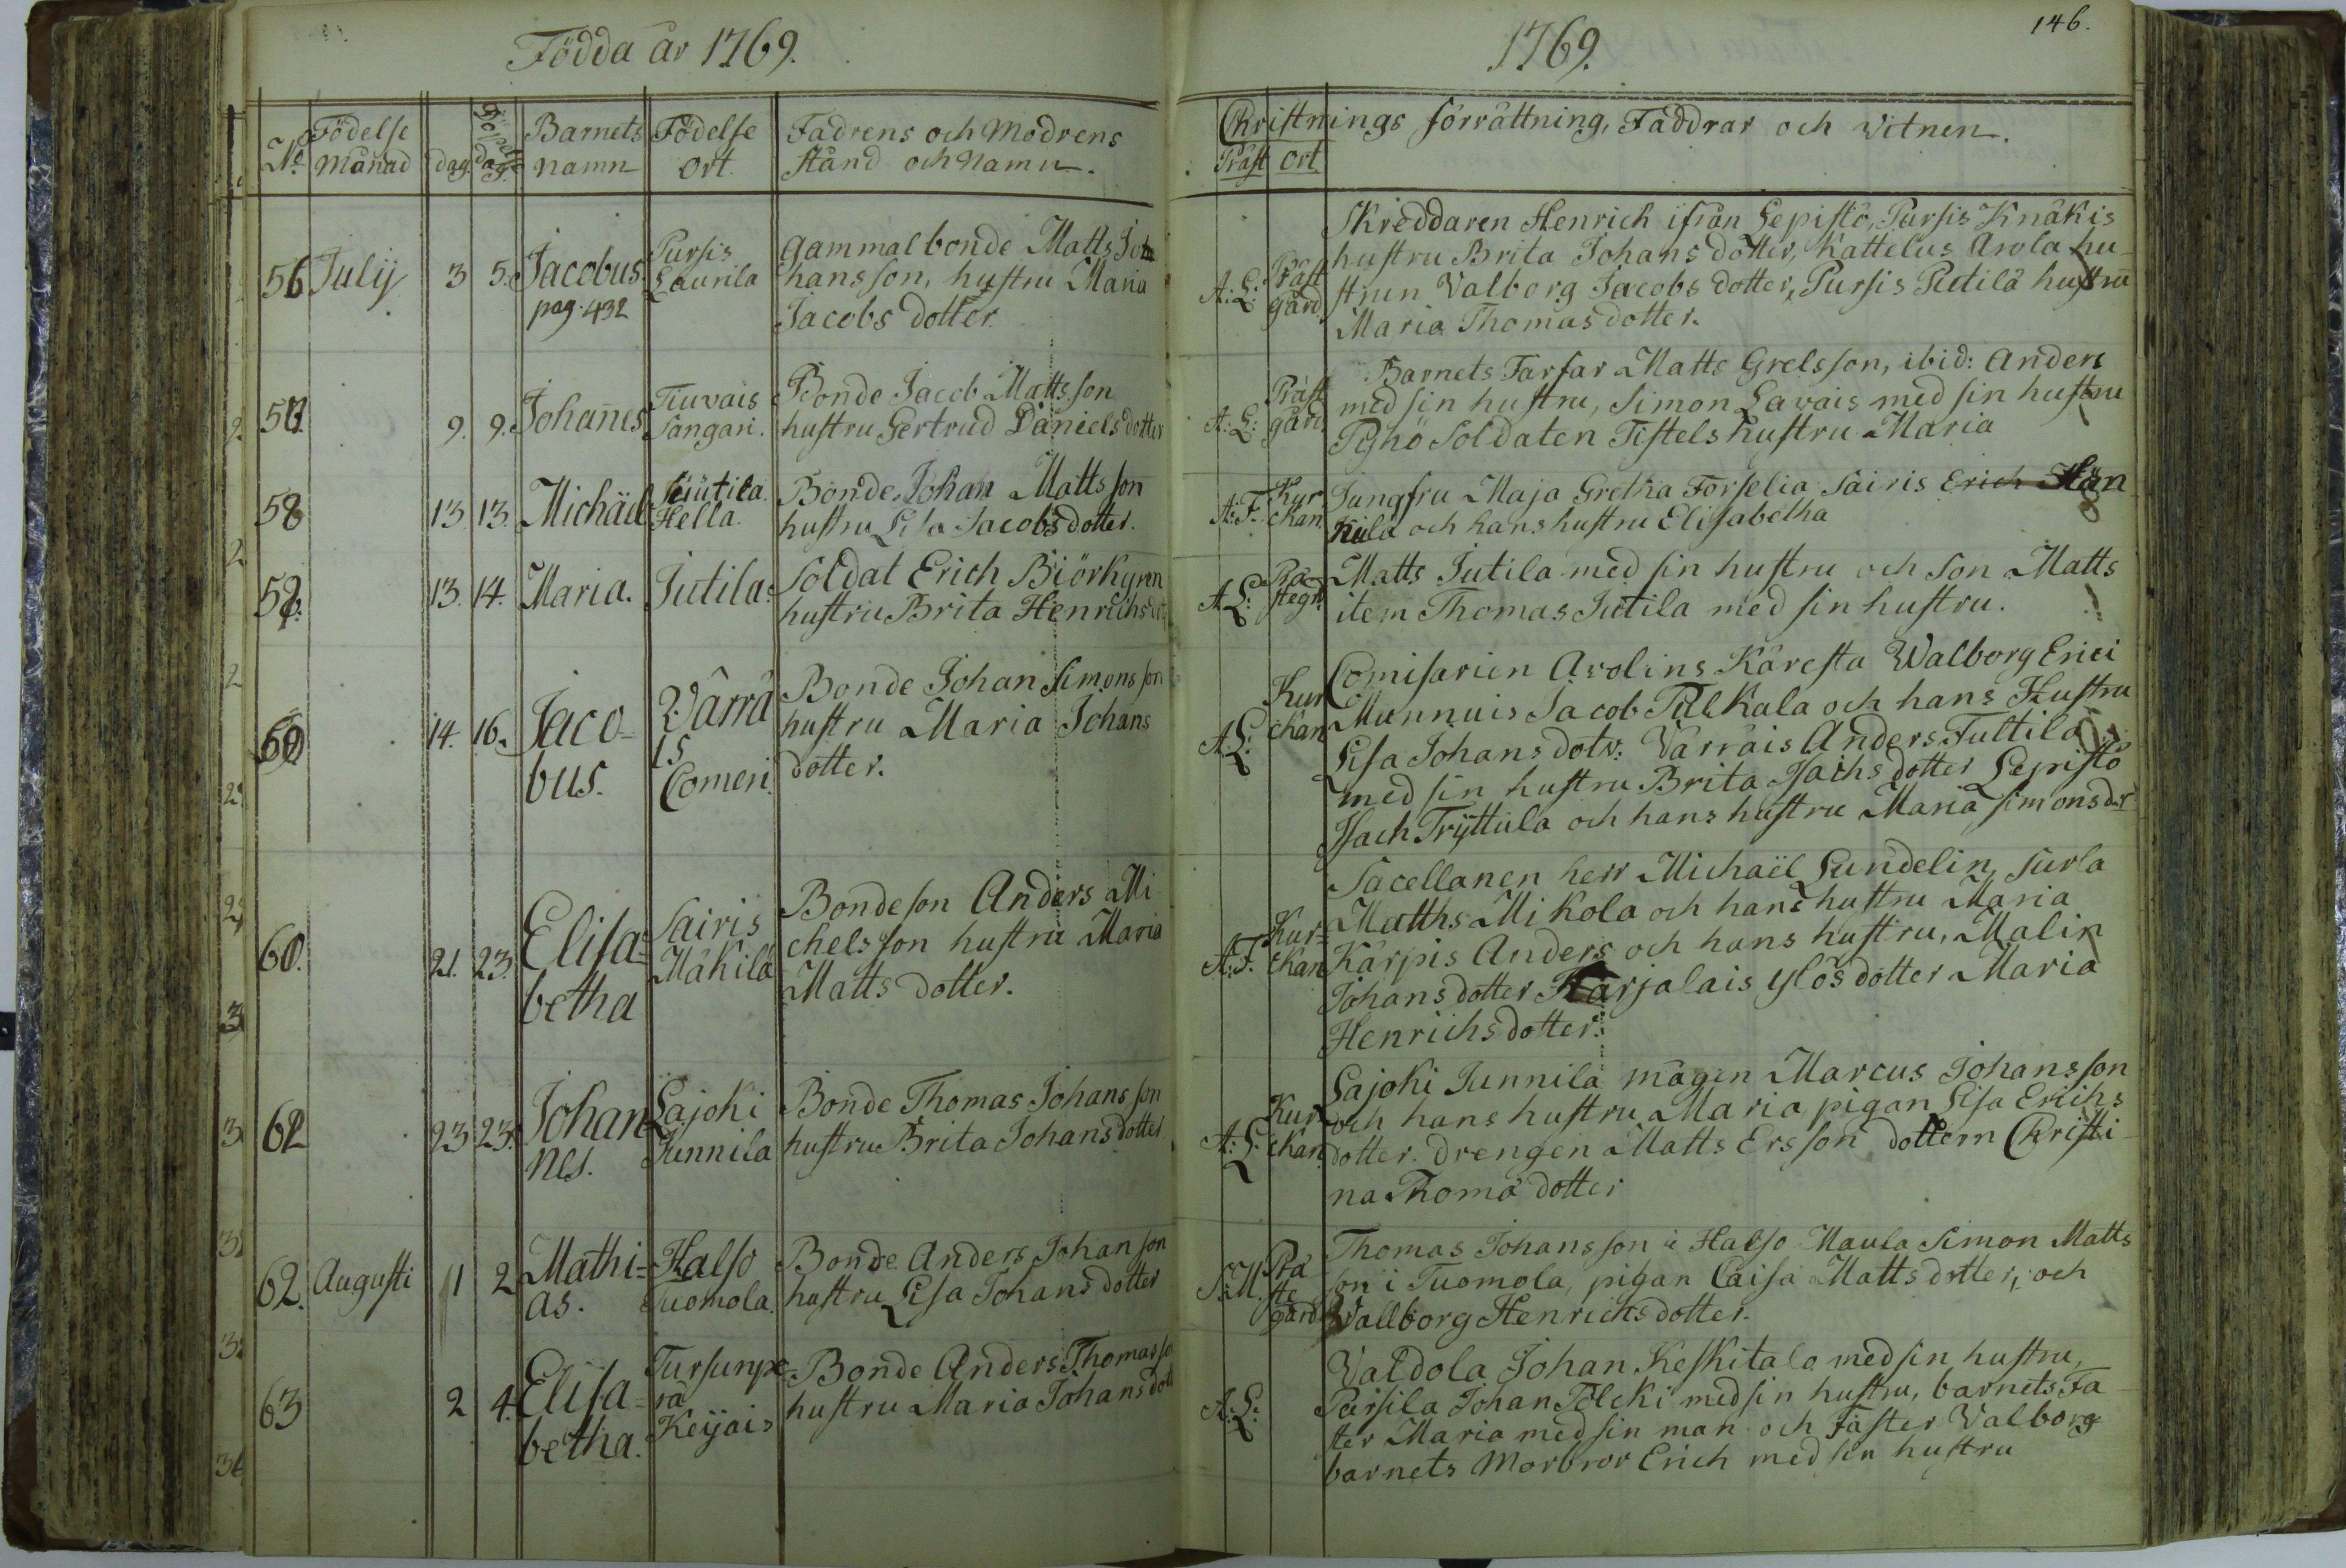 Födda år 1769.
No. Födelse Månad dag. Döpelse dag. Barnets namn Födelse ort. Fadrens och Modrens stånd och Namn.
56 Julij 3 5. Jacobus pag. 432 Pursis Laurila Gammal bonde Matts Jo-
hansson, hustru Maria
Jacobs dotter
57. 9. 9. Johanes Tiuvais Sangari. Bonde Jacob Mattsson
hustru Gertrud Daniels dotter
58 13 13 Michäel Hella. Bonde Johan Mattsson
hustru Lisa Jacobs dotter.
59. 13. 14. Maria. Jutila. Soldat Erich Biörkgren
hustru Brita Henrichs
14. 16. Jaco-
bus. Värrä
is
Comeri. Bonde Johan Simonsson
hustru Maria Johans
dotter.
60. 21. 23. Elisa-
betha Sairis
Mäkilä Bondeson Anders Mi-
chelsson hustru Maria
Matts dotter.
23 23. Johan
nes. Lajoki
Junnila Bonde Thomas Johansson
hustru Brita Johans dotter
62. Augusti 1 2 Mathi-
as. Halso
Tuomola. Bonde Anders Johanson
hustru Lisa Johans dotter
63 2 4. Elisa-
betha. Tursunpe-
rä
Keijais Bonde Anders Thomasso
hustru Maria Johans dott
1769.
146.
Christnings förrättning, Faddrar och Vitnen.
Präst Ort.
A. L. Präst gård Skreddaren Henrich ifrån Lepistö, Pursis Knäkis
hustru Brita Johans dotter, Kattelus Arola hu-
strun Valborg Jacobs dotter, Pursis Pietilä hustru
Maria Thomas dotter.
A. L. Präst gård Barnets Farfar Matts Grelsson, ibid: Anders
med sin hustru, Simon Lavais med sin hustru
Pyhö Soldaten Tistels hustru Maria
A. F. Kyr ckan Jungfru Maja Gretha Forselia Sairis Erich Hän
kilä och hans hustru Elisabetha
A. L. Prä stegd Matts Jutila med sin hustru och son Matts
item Thomas Jutila med sin hustru.
A. L. Kyr ckan Comisarien Arolins Käresta Walborg Erici
Munnuis Jacob Pulkala och hans Hustru
Lisa Johans dotr: Värräis Anders Tuttila
med sin hustru Brita Isachs dotter Lepistö
Isach Tryttula och hans hustru Maria Simonsdr
A. F. Kyr- ckan Sacellanen herr Michaël Lundelin, Surla
Matths Mikola och hans hustru Maria
Kärpis Anders och hans hustru, Malin
Johans dotter Karjalais Ylös dotter Maria
Henrichs dotter.
A. L. Kyr ckan Lajoki Junnila mågen Marcus Johansson
och hans hustru Maria, pigan Lisa Erichs
dotter. Drengen Matts Ersson dottern Christi-
na Thoma dotter
Prä ste gård Thomas Johansson i Halso Maula Simon Matts
son i Tuomola, pigan Caisa Matts dotter, och
Wallborg Henrichs dotter.
A. L. Valdola Johan Keskitalo med sin hustru,
Pärsila Johan Tölcki med sin hustru, barnets Fa-
ster Maria med sin man och Faster Valborg
barnets Morbror Erich med sin hustru